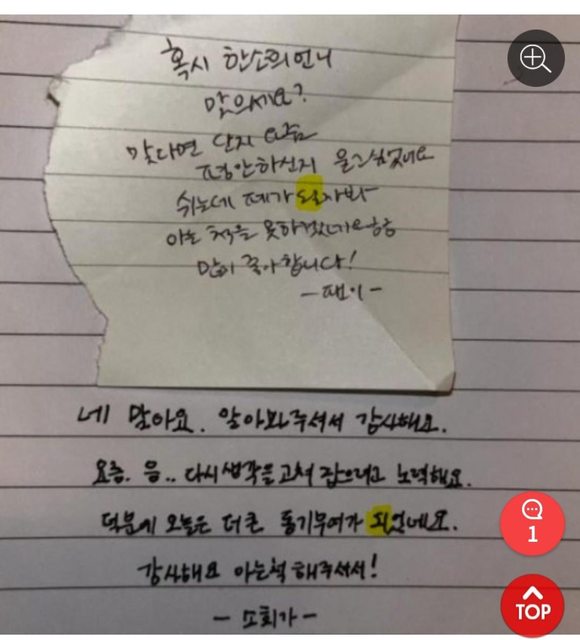 혹시 한소희언니
맞으세요?
맞다면 단지 요즘
평안하신지 묻고싶었어요
쉬는데 폐가
아는 척을 못하겠네요ㅎㅎ
많이 좋아합니다!
- 팬이 -
네 맞아요. 알아봐주셔서 감사해요.
요즘. 음.. 다시 생각을 고쳐 잡으려고 노력해요.
덕분에 오늘은 더 큰 동기부여가 되었네요.
감사해요 아는척 해주셔서!
- 소희가 -
1
TOP